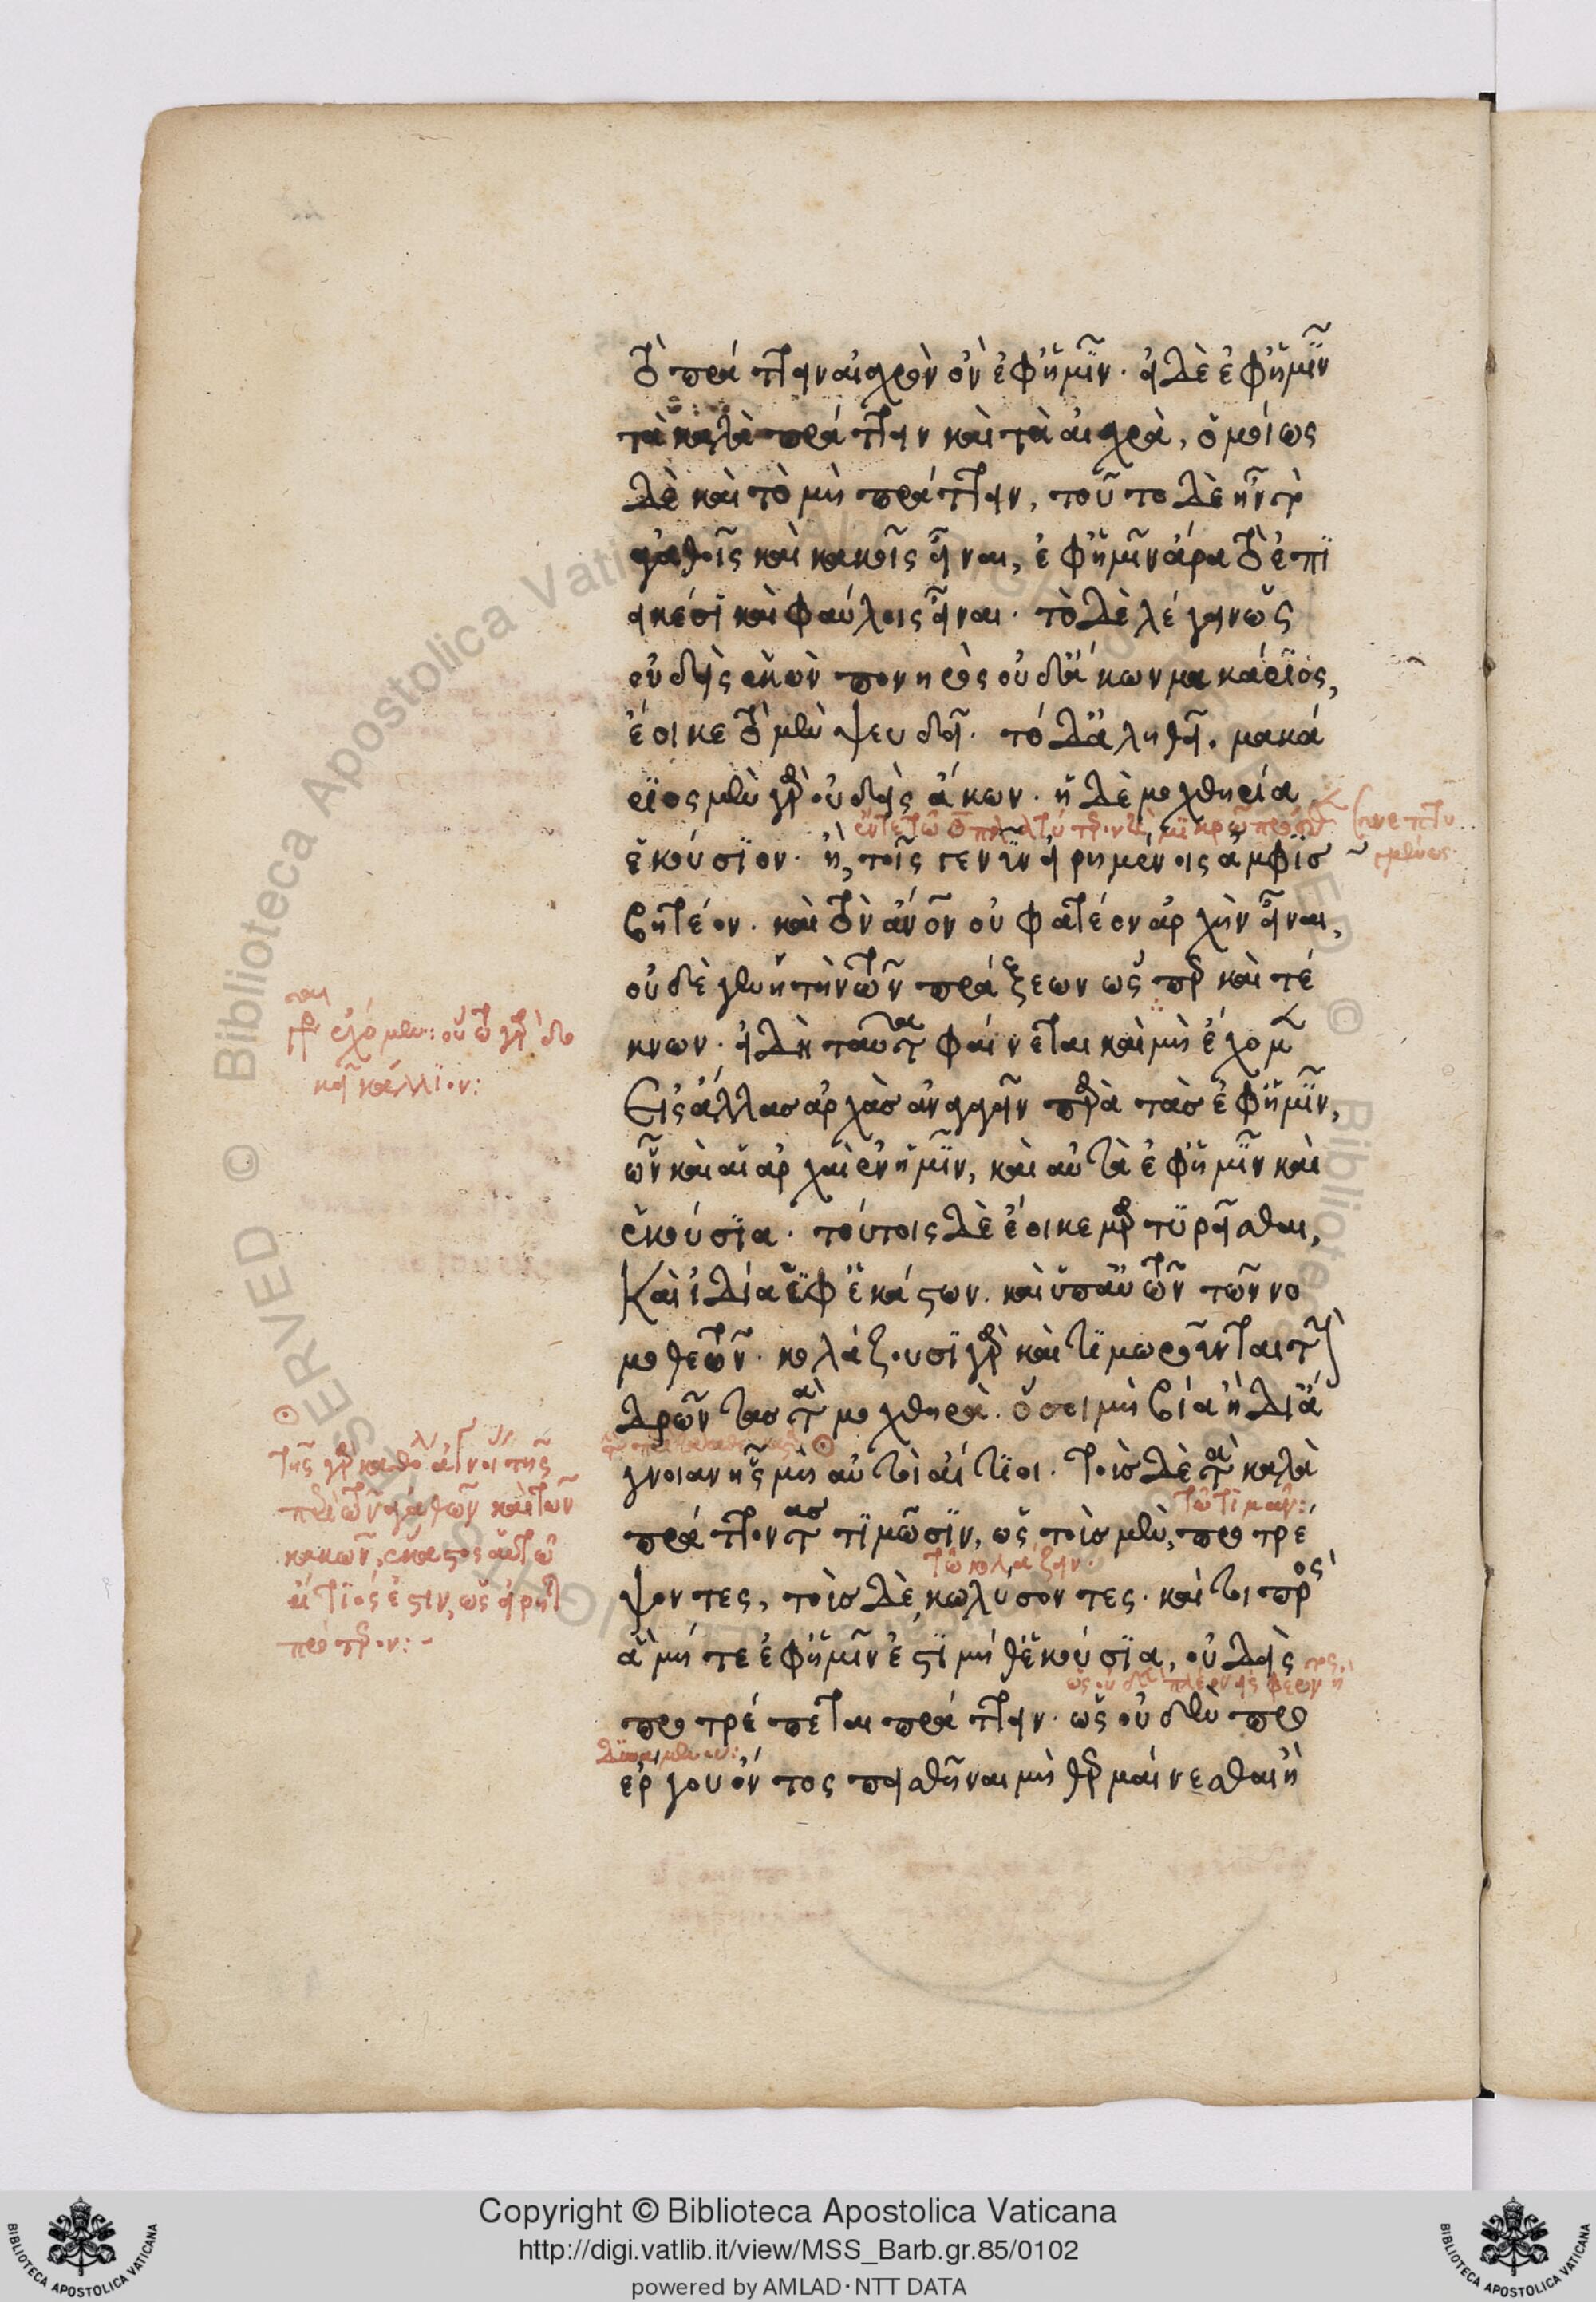 τὸ πράττειν αἰσχρὸν ὂν ἐφ' ἡμῖν. εἰ δὲ ἐφ' ἡμῖν
τὰ καλὰ πράττειν καὶ τὰ αἰσχρὰ, ὁμοίως
δὲ καὶ τὸ μὴ πράττειν, τοῦτο δὲ ἦν τὸ
ἀγαθοῖς καὶ κακοῖς εἶναι, ἐφ' ἡμῖν ἄρα τὸ ἐπι
εικέσι καὶ φαύλοις εἶναι. τὸ δὲ λέγειν ὡς
οὐδεὶς ἑκὼν πονηρὸς οὐδ' ἄκων μακάριος,
ἔοικε τὸ μὲν ψευδεῖ. τὸ δ' ἀληθεῖ. μακά
ριος μὲν γὰρ οὐδεὶς ἄκων. ἡ δὲ μοχθηρία
ἑκούσιον. ἢ, τοῖς γε νῦν εἰρημένοις ἀμφισ
βητέον. καὶ τὸν ἄνον οὐ φατέον ἀρχὴν εἶναι,
οὐδὲ γεννητὴν τῶν πράξεων ὥσπερ καὶ τέ
κνων. εἰ δὲ ταῦτα φαίνεται καὶ μὴ ἔχομεν
εἰς ἄλλας ἀρχὰς ἀναγαγεῖν παρὰ τὰς ἐφ' ἡμῖν,
ὧν καὶ αἱ ἀρχαὶ ἐν ἡμῖν, καὶ αὐτὰ ἐφ' ἡμῖν καὶ
ἑκούσια. τούτοις δὲ ἔοικε μαρτυρεῖσθαι,
καὶ ἰδία ἐφ' ἑκάστων. καὶ ὑπ' αὐτῶν τῶν νο
μοθετῶν. κολάζουσι γὰρ καὶ τιμωροῦνται τοὺς
δρῶντας τὰ μοχθηρὰ. ὅσοι μὴ βία ἢ δι' ἄ
γνοιαν ἧς μὴ αὐτοὶ αἴτιοι. τοὺς δὲ τὰ καλὰ
τῶ τιμᾶν:
πράττοντας τιμῶσιν, ὡς τοὺς μὲν, προτρέ
τῶ κολάζειν.
ψοντες, τοὺς δὲ, κωλύσοντες. καί τοι πρὸς
ἃ μήτε ἐφ' ἡμῖν ἐστὶ μήθ' ἑκούσια, οὐδεὶς
προτρέπεται πράττειν. ὡς οὐδὲν πρὸ
ἔργου ὄντος πεισθῆναι μὴ θερμαίνεσθαι ἢ
ἔχομεν: οὕτω γὰρ δο
κεῖ κάλλιον:
τῆς γὰρ καθόλου ἀγνοίας τῆς
περὶ τῶν ἀγαθῶν καὶ τῶν
κακῶν, ἕκαστος αὑτῶ
αἴτιός ἐστιν, ὡς εἴρηται
πρότερον:-
Copyright © Biblioteca Apostolica Vaticana
http://digi.vatlib.it/view/MSS_Barb.gr.85/0102
powered by AMLAD·NTT DATA